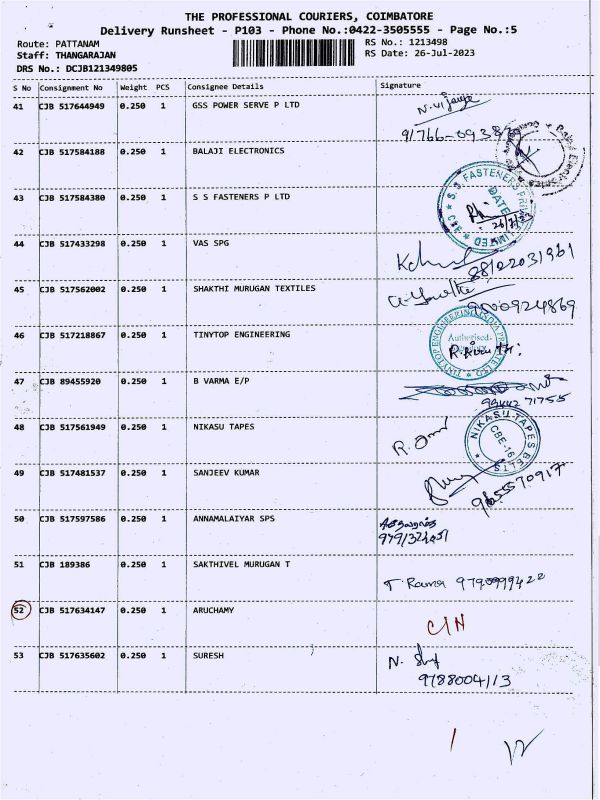 THE PROFESSIONAL COURIERS, COIMBATORE
Delivery Runsheet - P103 - Phone No.:0422-3505555 - Page No.:5
Route: PATTANAM RS No.: 1213498
Staff: THANGARAJAN RS Date: 26-Jul-2023
DRS No.: DCJB121349805
S No Consignment No Weight PCS Consignee Details Signature
41 CJB 517644949 0.250 1 GSS POWER SERVE P LTD N. Vijaya
42 CJB 517584188 0.250 1 BALAJI ELECTRONICS
43 CJB 517584380 0.250 1 S S FASTENERS P LTD
S. S. FASTENERS PRIVATE LIMITED CBE
DATE
26/7/23
44 CJB 517433298 0.250 1 VAS SPG
88122031961
45 CJB 517562002 0.250 1 SHAKTHI MURUGAN TEXTILES
9500924869
46 CJB 517218867 0.250 1 TINYTOP ENGINEERING
TINYTOP ENGINEERING INDIA PRIVATE LTD
Authorised
47 CJB 89455920 0.250 1 B VARMA E/P
99442 71755
48 CJB 517561949 0.250 1 NIKASU TAPES
NIKASU TAPES BELTS
CBE-16
49 CJB 517481537 0.250 1 SANJEEV KUMAR
9655570917
50 CJB 517597586 0.250 1 ANNAMALAIYAR SPS
51 CJB 189386 0.250 1 SAKTHIVEL MURUGAN T
T. Rama 9790999422
52 CJB 517634147 0.250 1 ARUCHAMY
C/N
53 CJB 517635602 0.250 1 SURESH
N.
9788004113
12